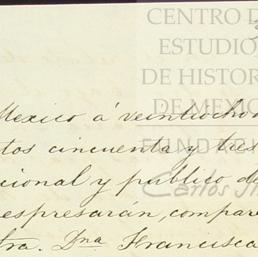 CENTRO D
ESTUDIO
DE HISTOR
DE MEXIC
FUNDAC
Carlos
Mexico á veintiocho
tos cincuenta y tres
cional y publico d
espresarán, compare
tra. Dna Francisca